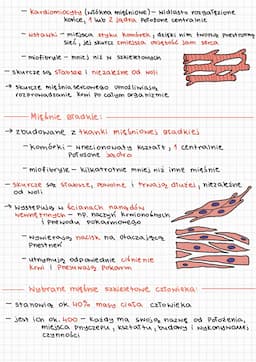 - kardiomiocyty (włókna mięśniowe) - widlasto rozgałęzione
końce, 1 lub 2 jądra położone centralnie
- wstawki - miejsca styku komórek, dzięki nim tworzą przestrzenną
sieć, jej skurcz zmniejsza objętość jam serca
- miofibryle - mniej niż w szkieletowych
- skurcze są słabsze i niezależne od woli
→ skurcze mięśnia sercowego umożliwiają
rozprowadzanie krwi po całym organizmie
Mięśnie gładkie:
→ zbudowane z tkanki mięśniowej gładkiej
- komórki - wrzecionowaty kształt, 1 centralnie
położone jądro
- miofibryle - kilkakrotnie mniej niż inne mięśnie
- skurcze są słabsze, powolne i trwają dłużej, niezależne
od woli
→ występują w ścianach narządów
wewnętrznych - np. naczyń krwionośnych
i przewodu pokarmowego
- wywierają nacisk na otaczającą
przestrzeń
- utrzymują odpowiednie ciśnienie
krwi i przesuwają pokarm
Wybrane mięśnie szkieletowe człowieka
- stanowią ok. 40% masy ciała człowieka
- jest ich ok. 400 - każdy ma swoją nazwę od położenia,
miejsca przyczepu, kształtu, budowy i wykonywanej
czynności